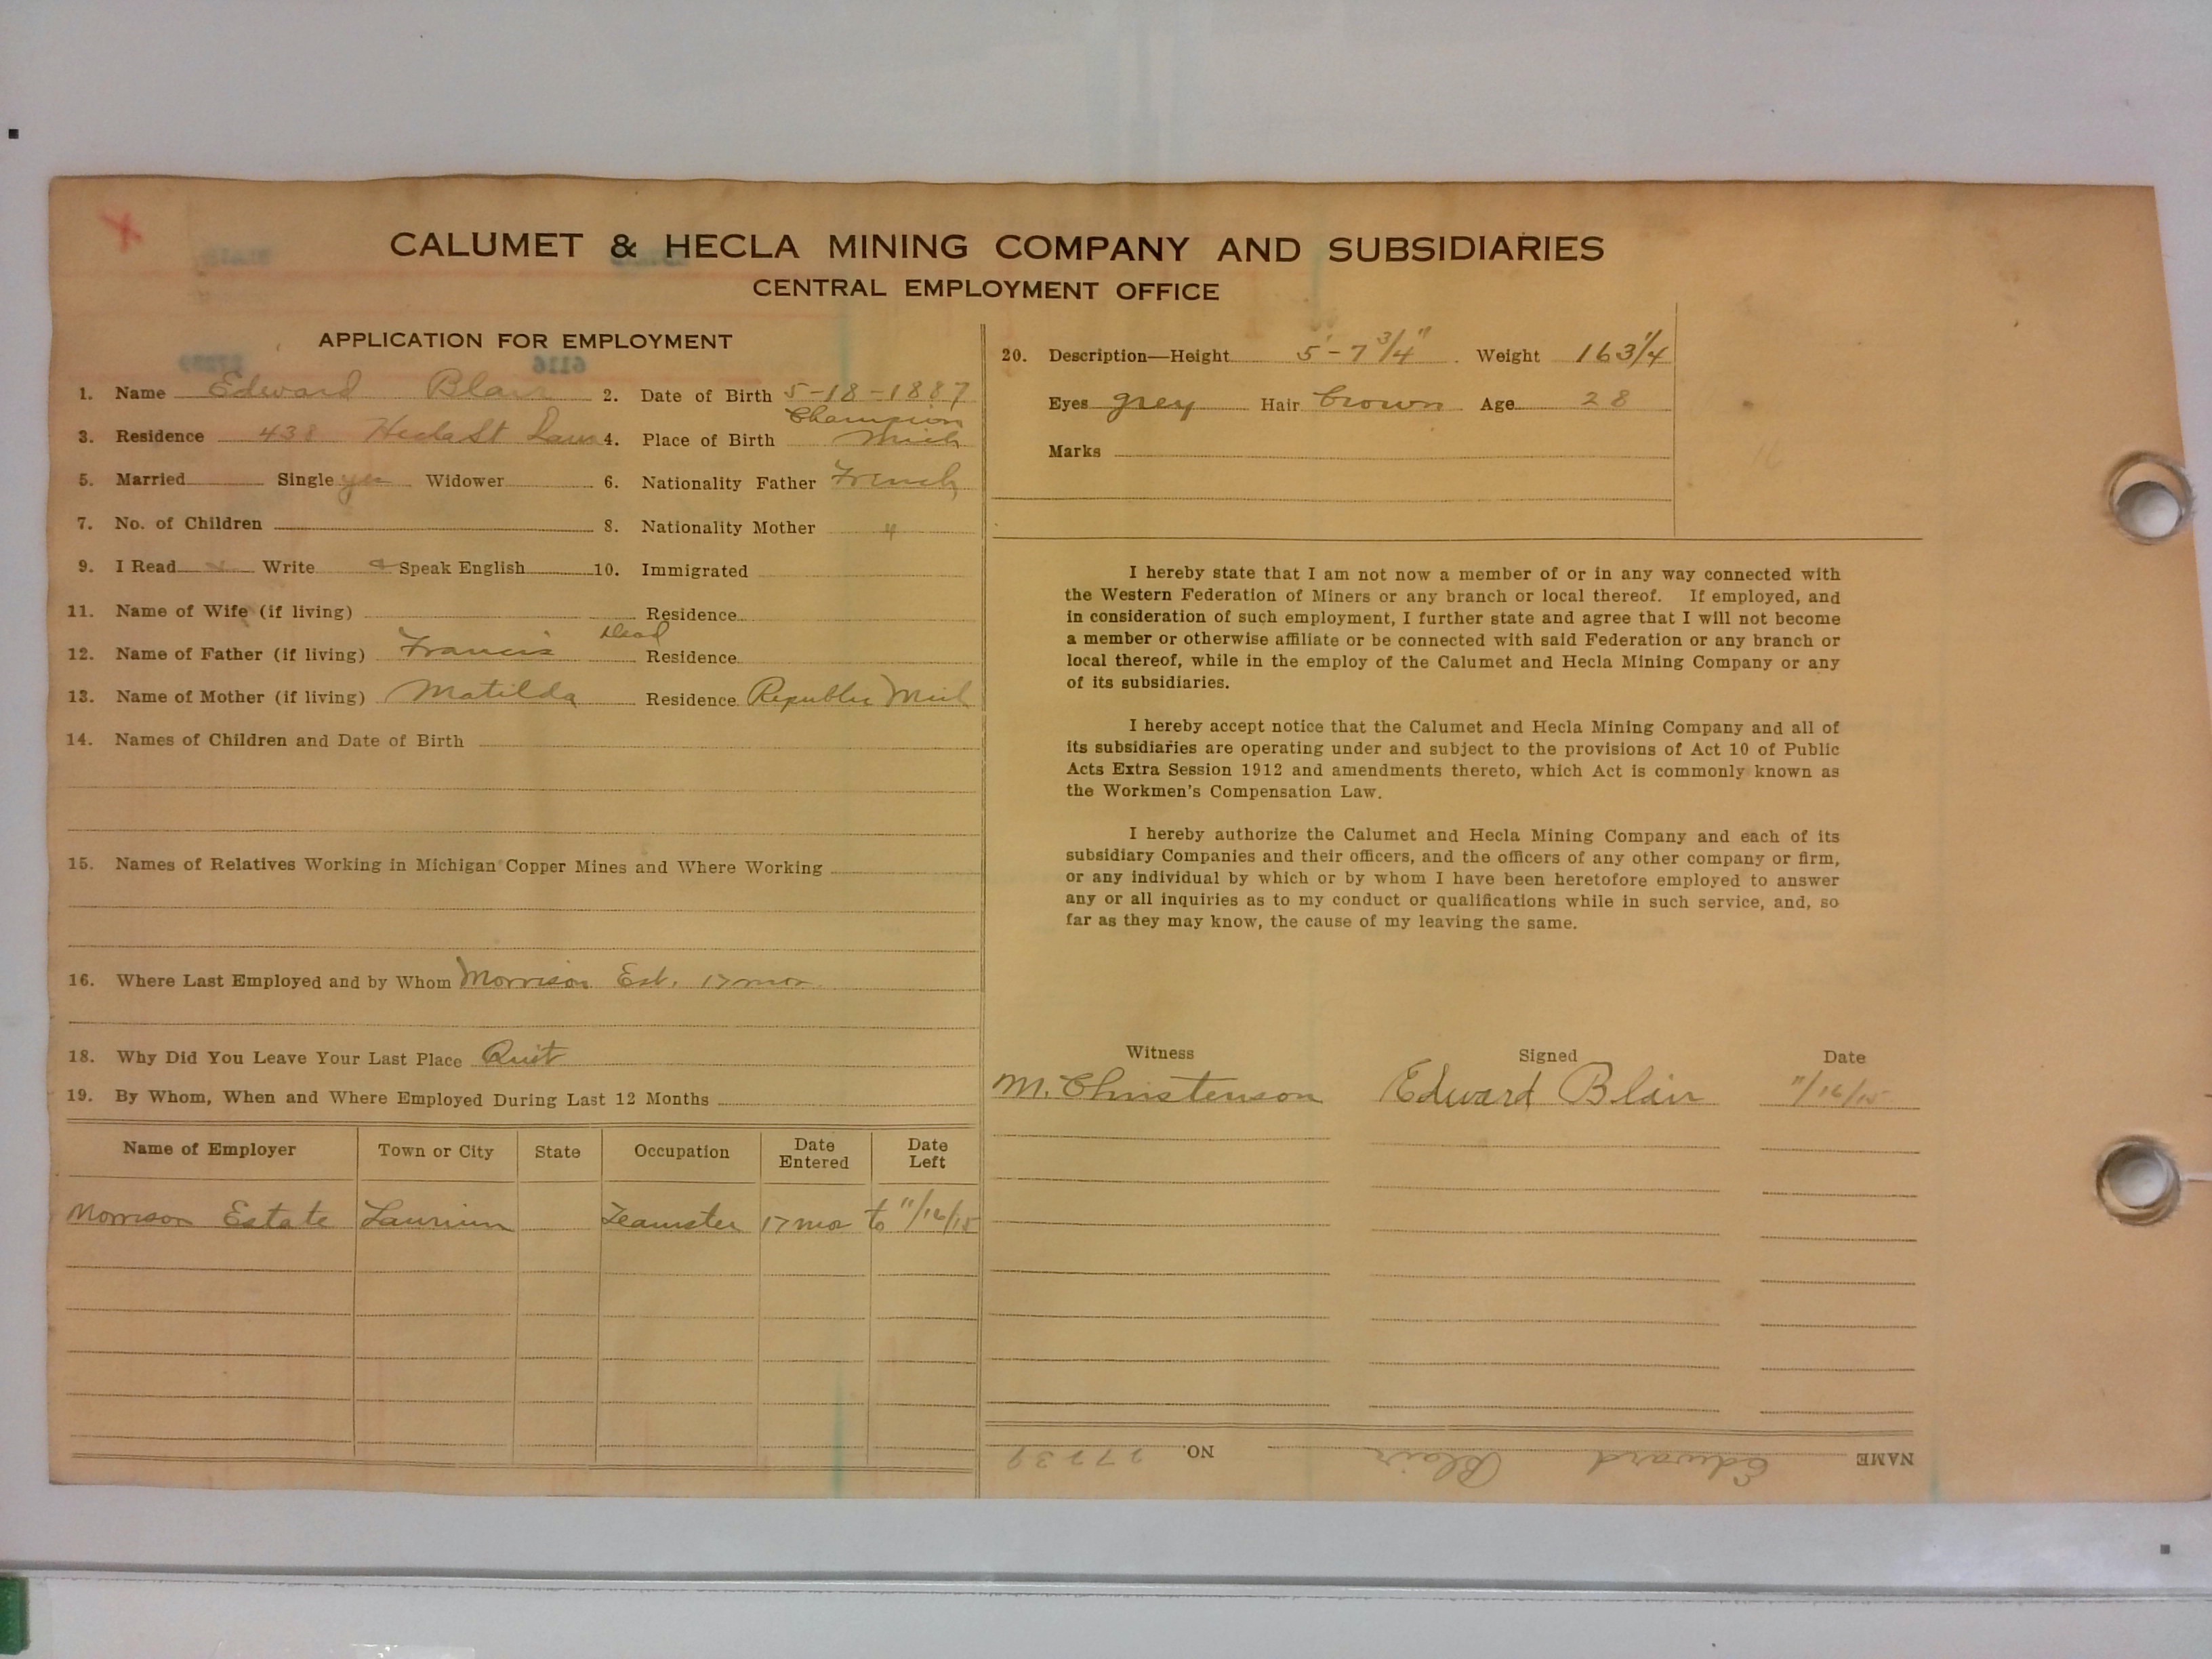 CALUMET & HECLA MINING COMPANY AND SUBSIDIARIES
CENTRAL EMPLOYMENT OFFICE
APPLICATION FOR EMPLOYMENT
6116
1. Name Edward Blair 2. Date of Birth 5-18-1887
3. Residence 438 Hecla St Laur 4. Place of Birth Champion Mich
5. Married Single yes Widower 6. Nationality Father French
7. No. of Children 8. Nationality Mother "
9. I Read Write Speak English 10. Immigrated
11. Name of Wife (if living) Residence
12. Name of Father (if living) Francis Dead Residence
13. Name of Mother (if living) Matilda Residence Republic Mich
14. Names of Children and Date of Birth
15. Names of Relatives Working in Michigan Copper Mines and Where Working
16. Where Last Employed and by Whom Morrison Est. 17 mos
18. Why Did You Leave Your Last Place Quit
19. By Whom, When and Where Employed During Last 12 Months
Name of Employer Town or City State Occupation Date Entered Date Left
Morrison Estate Laurium Teamster 17 mos to 11/16/15
20. Description—Height 5'-7 3/4" Weight 163 1/4
Eyes grey Hair brown Age 28
Marks
I hereby state that I am not now a member of or in any way connected with
the Western Federation of Miners or any branch or local thereof. If employed, and
in consideration of such employment, I further state and agree that I will not become
a member or otherwise affiliate or be connected with said Federation or any branch or
local thereof, while in the employ of the Calumet and Hecla Mining Company or any
of its subsidiaries.
I hereby accept notice that the Calumet and Hecla Mining Company and all of
its subsidiaries are operating under and subject to the provisions of Act 10 of Public
Acts Extra Session 1912 and amendments thereto, which Act is commonly known as
the Workmen's Compensation Law.
I hereby authorize the Calumet and Hecla Mining Company and each of its
subsidiary Companies and their officers, and the officers of any other company or firm,
or any individual by which or by whom I have been heretofore employed to answer
any or all inquiries as to my conduct or qualifications while in such service, and, so
far as they may know, the cause of my leaving the same.
Witness Signed Date
M. Christenson Edward Blair 11/16/15
NAME Edward Blair NO. 27239